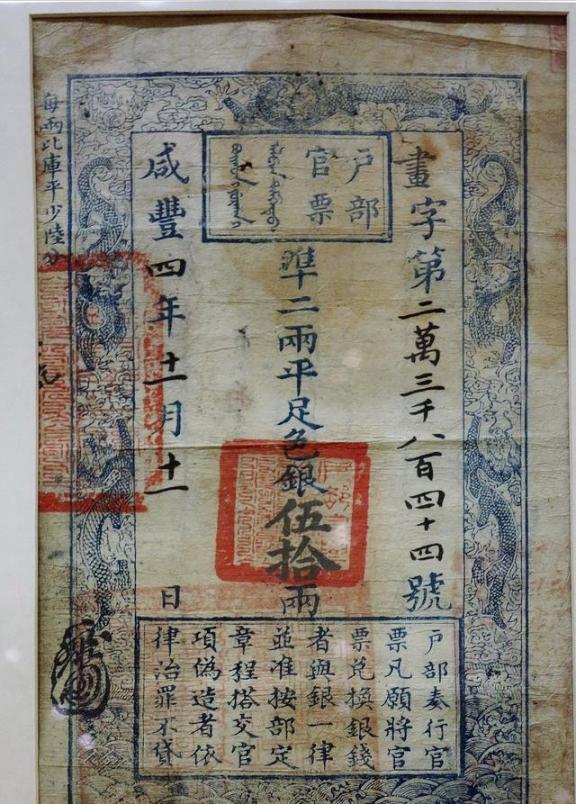 戶部
官票
畫字第二萬三千八百四十四號
準二兩平足色銀伍拾兩
咸豐四年十一月十一日
戶部奏行官
票凡願將官
票兌換銀錢
者與銀一律
並准按部定
章程搭交官
項偽造者依
律治罪不貸
每兩比庫平少陸分